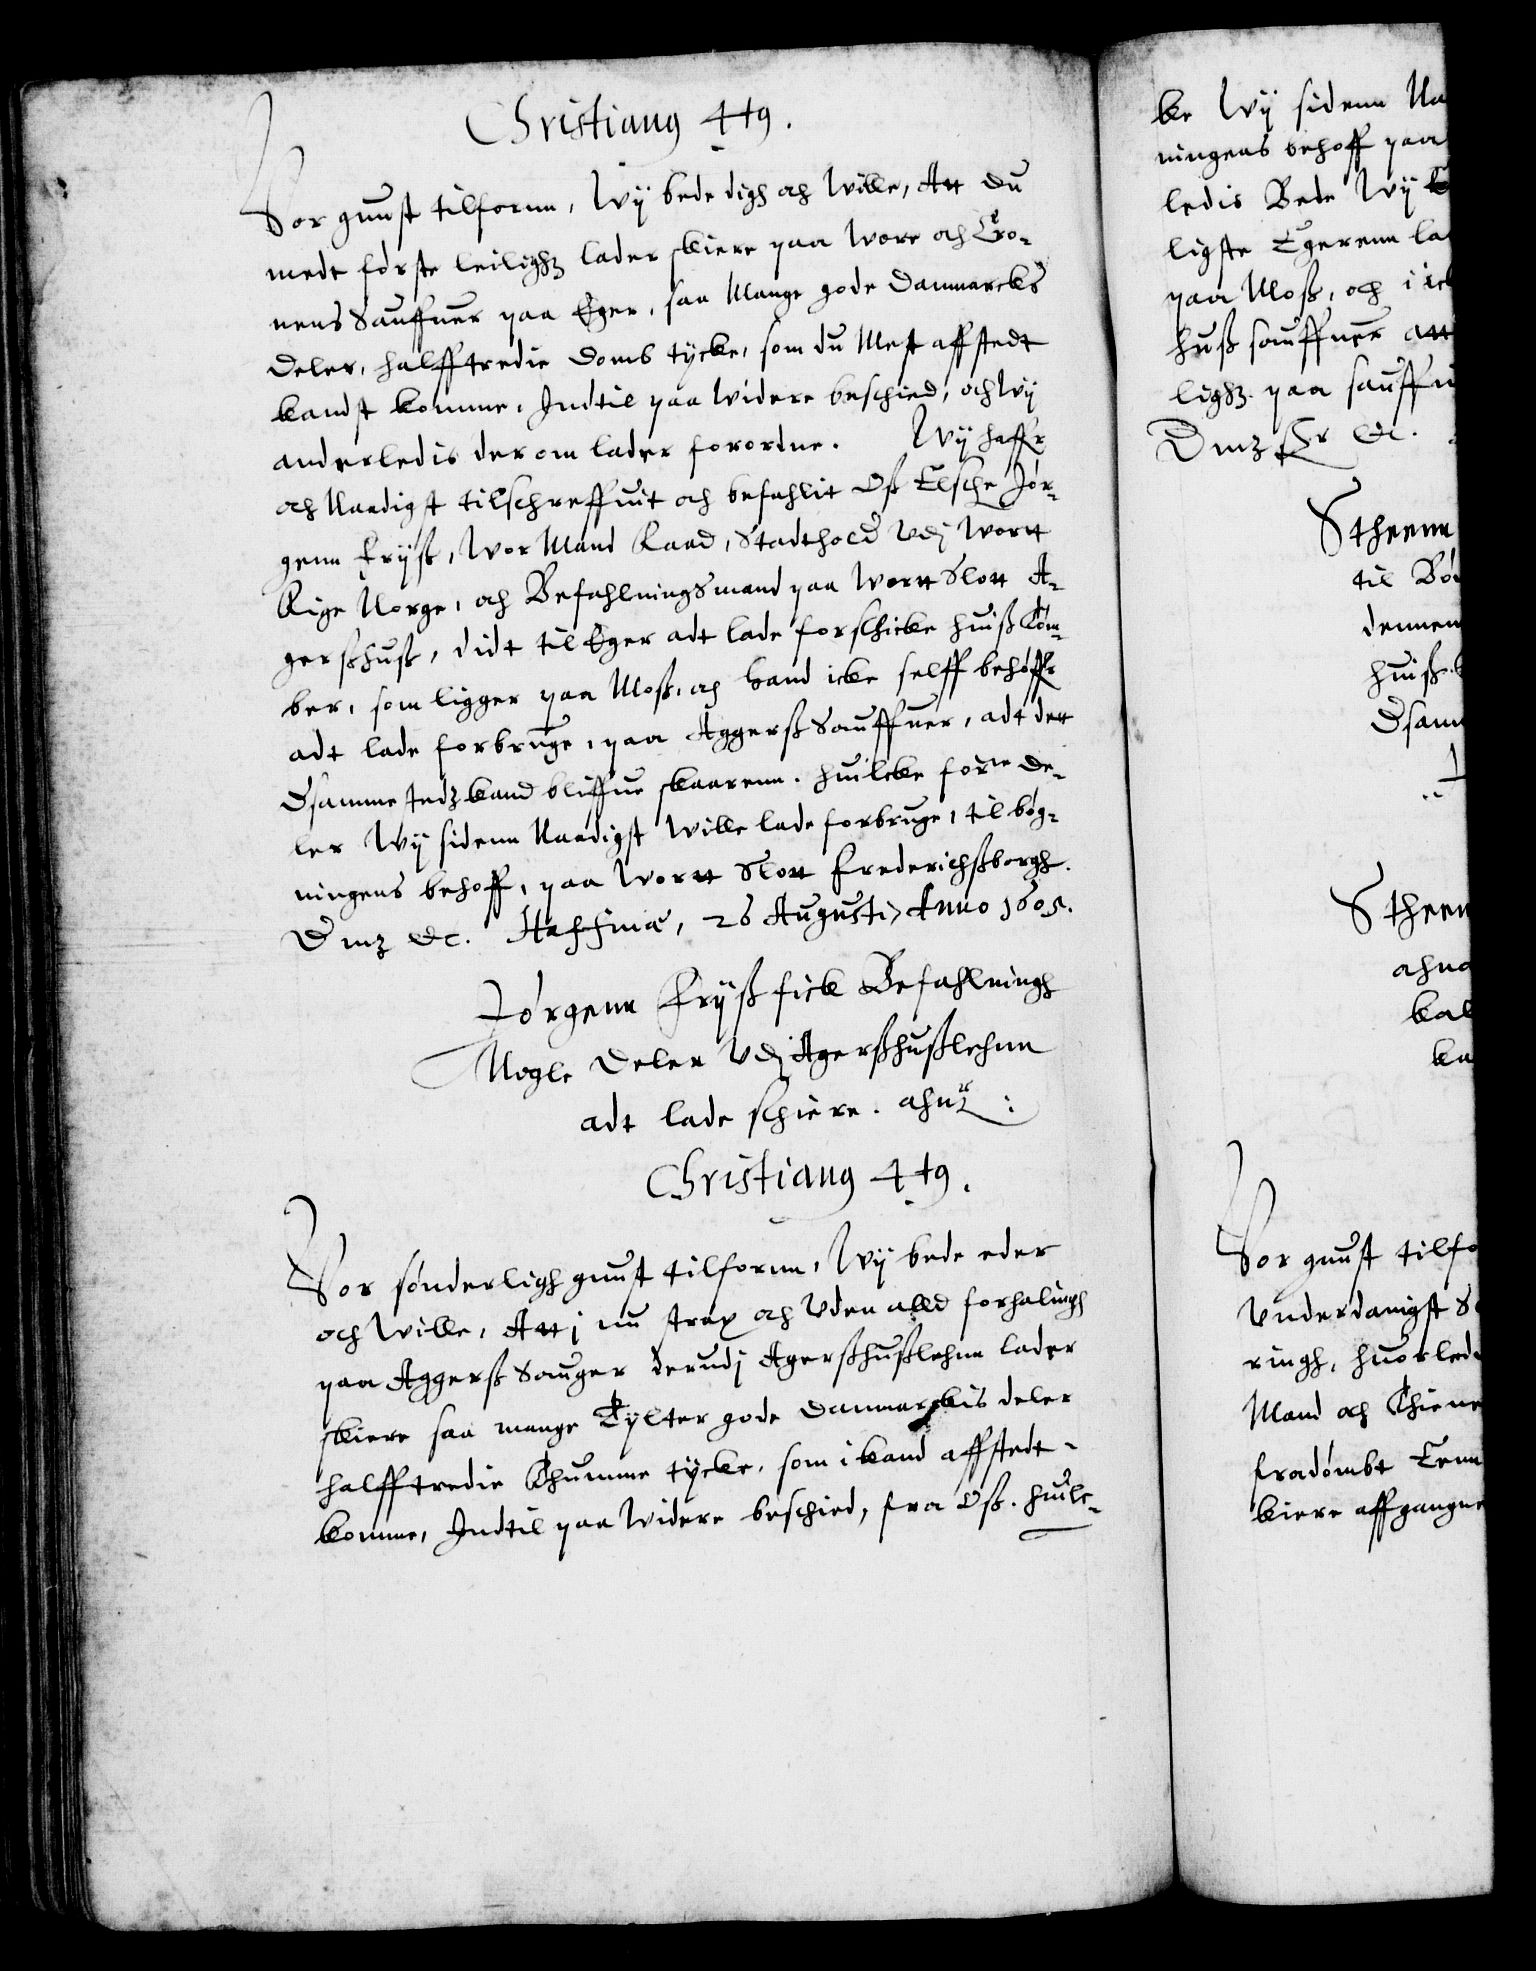 Christianus 4tus.
Vor gunst tilfornn, Wÿ bede digh och Wille, Att du
medt første leilighz lader skiere paa Wore och Cro-
nens Sauffuer paa Eger, saa Mange gode Danmarcks
deler, halfftredie Domb tÿcke, som du Mest affstedt
kandst komme, Indtil paa Widere beschied, och Wÿ
anderledis derom lader forordne. Wÿ haffr
och Naadigst tilschreffuit och befahlit Oß Elsche Jør-
genn Frÿß, Wor Mand Raad, Stadthold Udj Wortt
Rige Norge, och Befahlningsmand paa Wortt Slott A-
gerßhuß, didt til Eger adt lade forschicke huiß Tøm-
ber, som ligger paa Moß, och hand icke selff behøffr
adt lade forbruge, paa Aggerß Sauffuer, adt dett
Dsamme stedz kand bliffue skaarenn. huilcke forne de-
ler Wÿ sidenn Naadigst Wille lade forbruge, til bøg-
ningens behoff, paa Wortt Slott Frederichßborgh.
Dmz &c. Haffniæ, 26 Augusti, Anno 1605.
Jørgenn Frÿß fick Befahlningh
Nogle Deler Udj Agerßhußlehnn
adt lade schiere. ahnr:
Christianus 4tus.
Vor sønderligh gunst tilfornn, Wÿ bede eder
och Wille, Att j nu strax och Uden alld forhalingh
paa Aggerß Sauger derudj Agerßhußlehnn lader
skiere saa mange Tÿlter gode Danmarckis deler
halfftredie Thumme tÿcke, som i kand affstedt
komme, Indtil paa Widere beschied, fra Oß. huilc-
ke Wÿ sidenn Na
ningens behoff paa
ledis Bede Wÿ E
ligste Egerenn la
paa Moß, och i ick
huß sauffuer att
lighz paa sauffu
Dmz &c.
Stheenn
til Bø
dennem
huiß
Dsam
Stheen
ahn
kal
ka
Vor gunst tilfo
Underdanigst S
ringh, huorled
Mand och Thiene
fradømbt Tenn
kiere affgangne